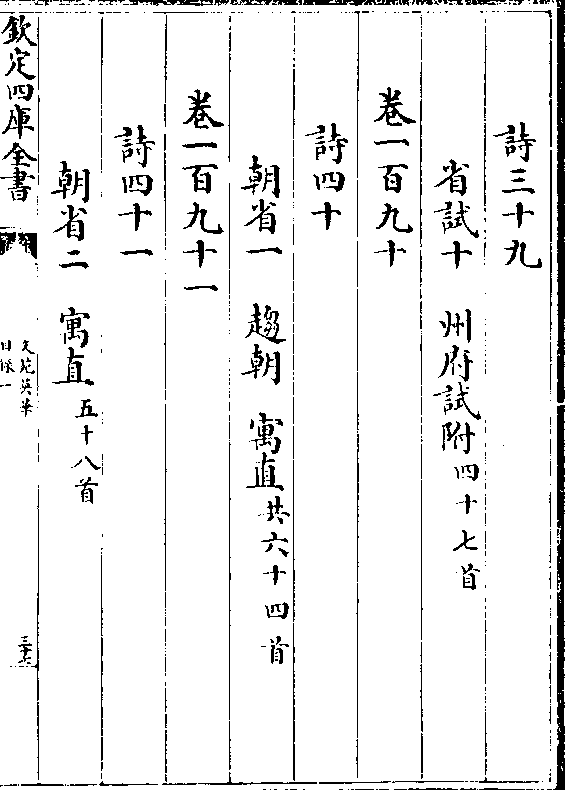 詩三十九
省試十　州府試附四十七首
卷一百九十
詩四十
朝省一　趨朝　寓直共六十四首
卷一百九十一
詩四十一
朝省二　寓直五十八首
欽定四庫全書
文苑英華
目録一